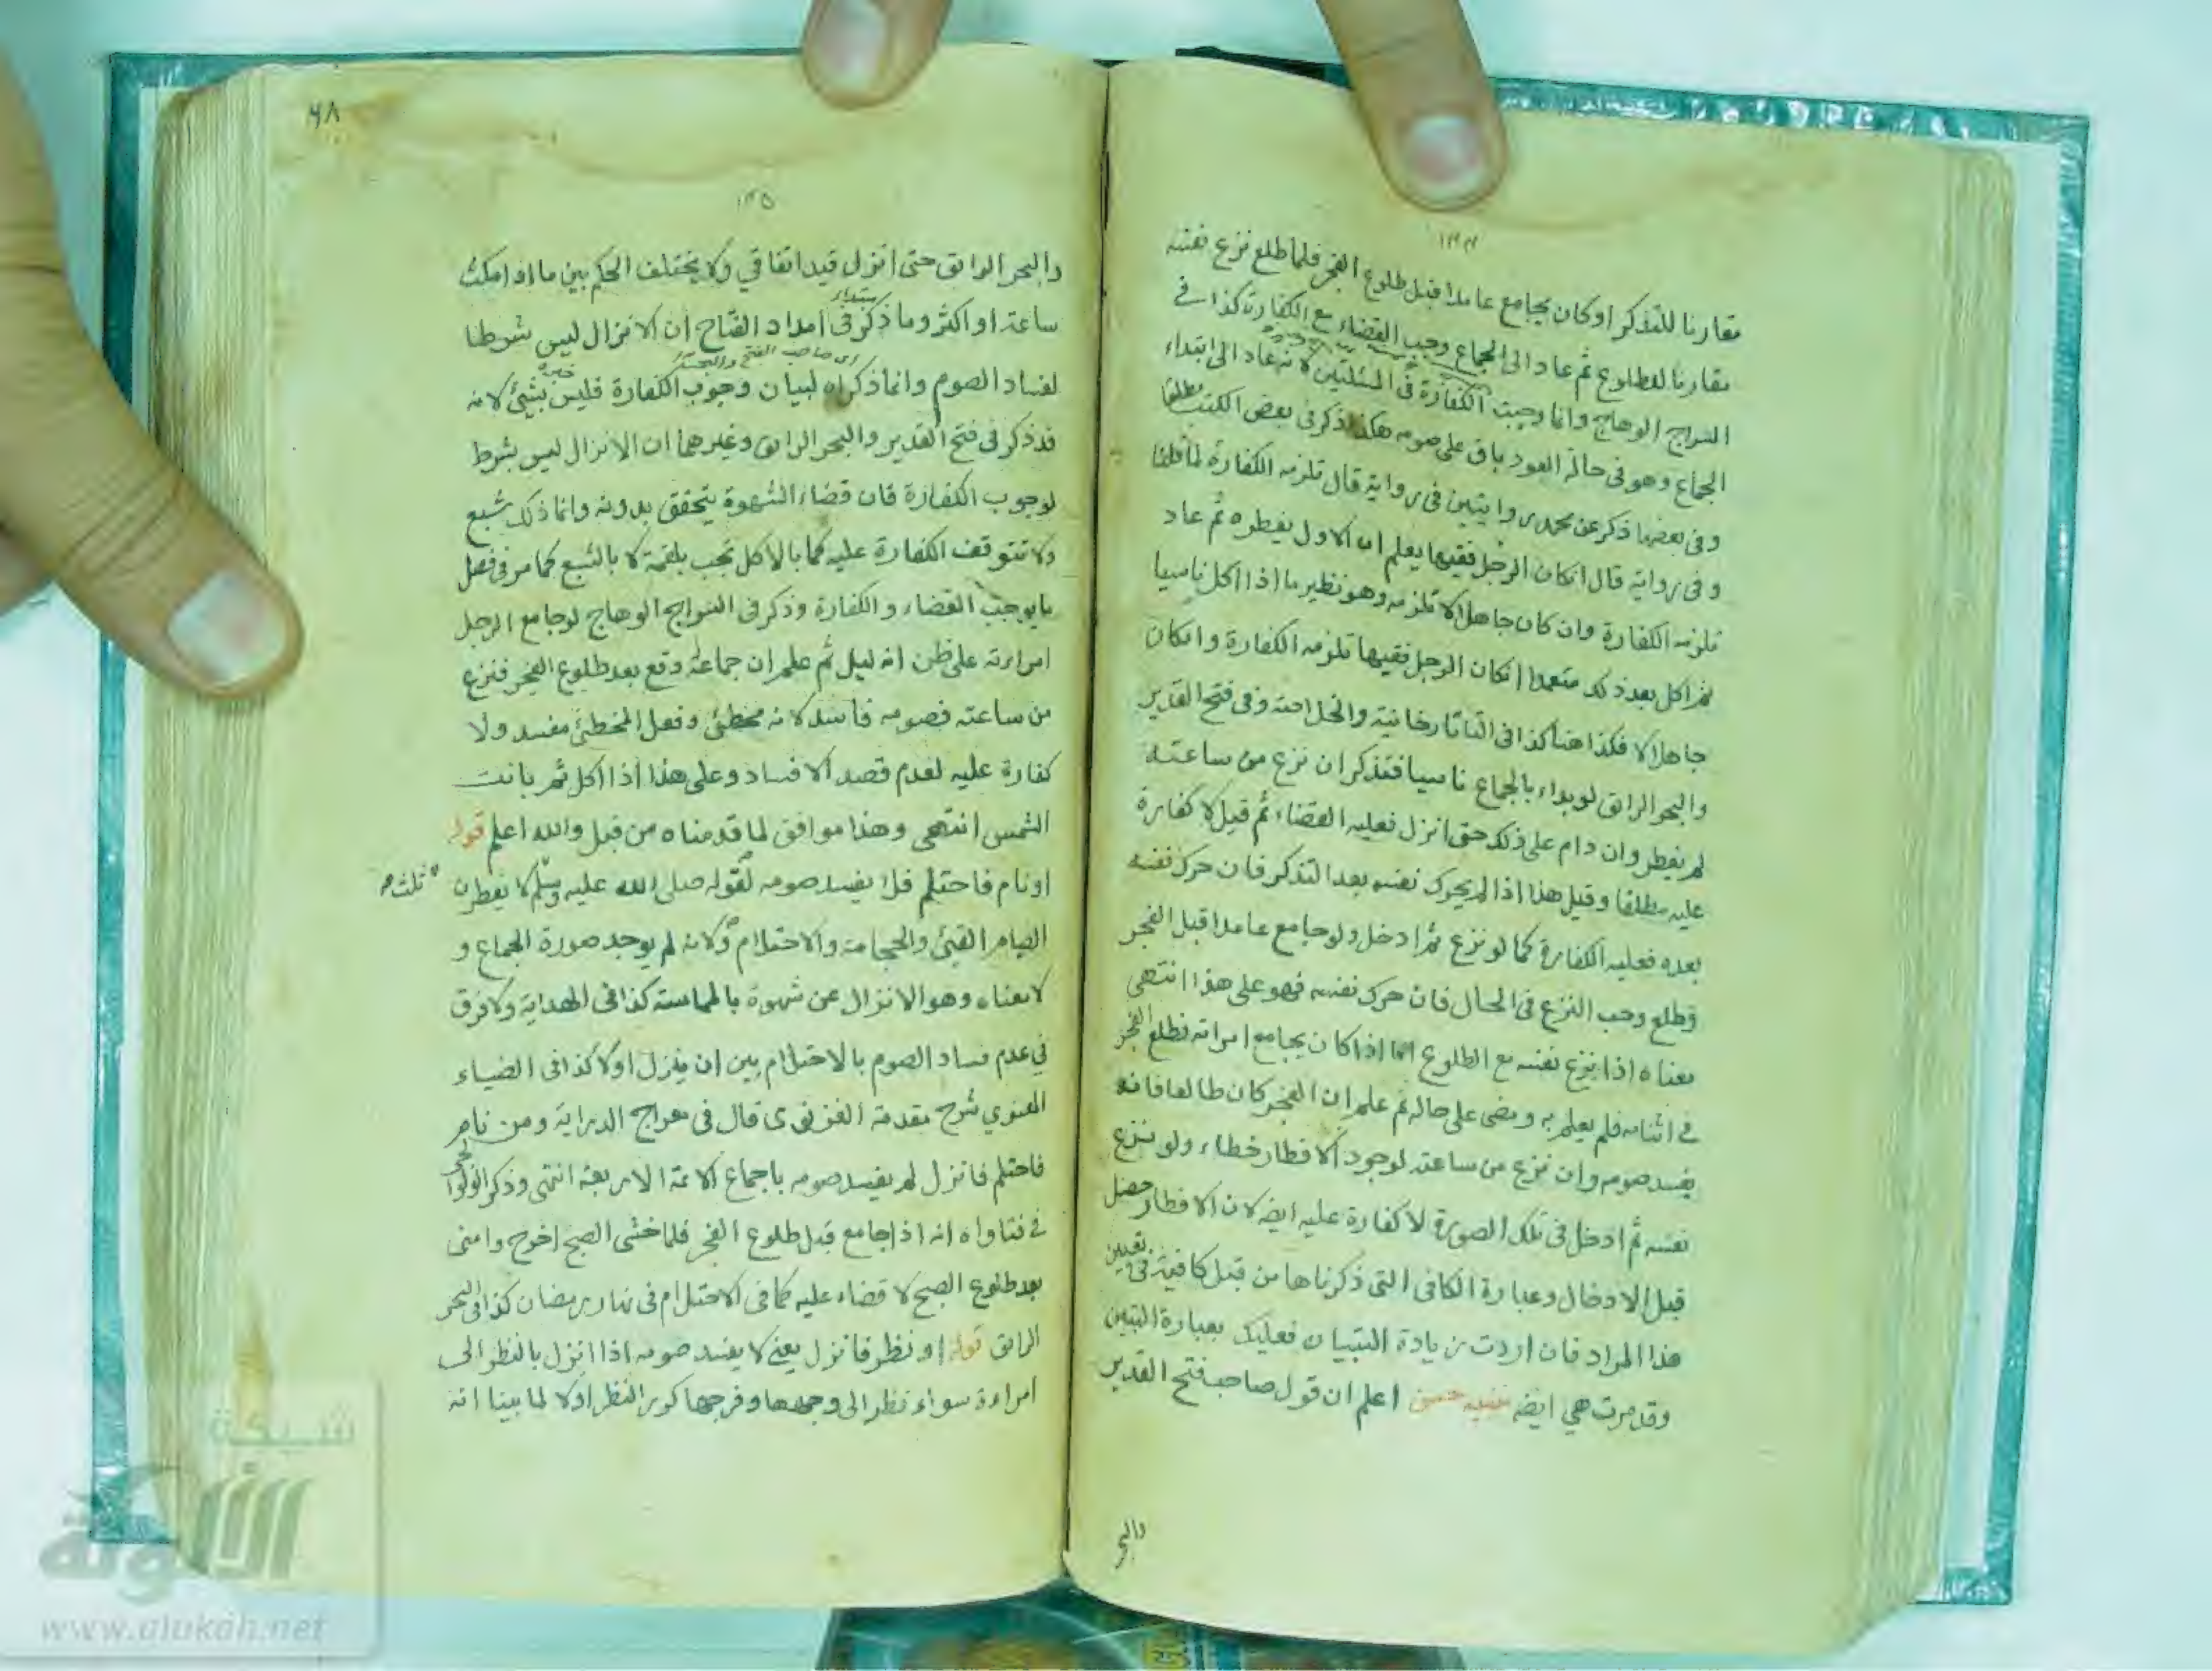 ١٣٤
مقارنا للتذكر او كان يجامع عامدا قبل طلوع الفجر فلما طلع نزع نفسه
مقارنا للطلوع ثم عاد الى الجماع وجب القضاء مع الكفارة كذا في
السراج الوهاج وانما وجبت الكفارة في المسئلتين لانه عاد الى ابتداء
الجماع وهو في حالة العود باق على صومه هكذا ذكر في بعض الكتب مطلقا
وفي بعضها ذكر عن محمد روايتين في رواية قال تلزمه الكفارة لما قلنا
وفي رواية قال ان كان الرجل فقيها يعلم ان الاول يفطره ثم عاد
تلزمه الكفارة وان كان جاهلا لا تلزمه وهو نظير ما اذا اكل ناسيا
ثم اكل بعد ذلك متعمدا ان كان الرجل فقيها تلزمه الكفارة وان كان
جاهلا لا فكذا هنا كذا في التاتارخانية والخلاصة وفي فتح القدير
والبحر الرائق لو بداء بالجماع ناسيا فتذكر ان نزع من ساعته
لم يفطر وان دام على ذلك حتى انزل فعليه القضاء ثم قيل لا كفارة
عليه مطلقا وقيل هذا اذا لم يحرك نفسه بعد التذكر فان حرك نفسه
بعده فعليه الكفارة كما لو نزع ثم ادخل ولو جامع عامدا قبل الفجر
وطلع وجب النزع في الحال فان حرك نفسه فهو على هذا انتهى
معناه اذا نزع نفسه مع الطلوع اما اذا كان يجامع امراته فطلع الفجر
في اثنائه فلم يعلم به ومضى على حاله ثم علم ان الفجر كان طالعا فانه
يفسد صومه وان نزع من ساعته لوجود الافطار خطاء ولو نزع
نفسه ثم ادخل في تلك الصورة لا كفارة عليه ايضه لان الافطار حصل
قبل الادخال وعبارة الكافي التي ذكرناها من قبل كافية في تعيين
هذا المراد فان اردت زيادة التبيان فعليك بعبارة التبيين
وقد مرت هي ايضه تنبيه حسن اعلم ان قول صاحب فتح القدير
والبحر
٦٨
١٣٥
والبحر الرائق حتى انزل قيد اتفاقي ولا يختلف الحكم بين ما اذا مكث
ساعة او اكثر وما ذكر في امداد الفتاح ان الانزال ليس شرطا
اى صاحب الفتح والبحر
لفساد الصوم وانما ذكراه لبيان وجوب الكفارة فليس بشئ لانه
قد ذكر في فتح القدير والبحر الرائق وغيرهما ان الانزال ليس بشرط
لوجوب الكفارة فان قضاء الشهوة يتحقق بدونه وانما ذلك شبع
ولا تتوقف الكفارة عليه كما بالاكل تجب بلقمة لا بالشبع كما مر في فصل
ما يوجب القضاء والكفارة وذكر في السراج الوهاج لو جامع الرجل
امراءته على ظن انه ليل ثم علم ان جماعه وقع بعد طلوع الفجر فنزع
من ساعته فصومه فاسد لانه مخطئ وفعل المخطئ مفسد ولا
كفارة عليه لعدم قصد الافساد وعلى هذا اذا اكل ثم بانت
الشمس انتهى وهذا موافق لما قدمناه من قبل والله اعلم قوله
او نام فاحتلم فلا يفسد صومه لقوله صلى الله عليه وسلم ثلث لا يفطرن
الصيام القيئ والحجامة والاحتلام ولانه لم يوجد صورة الجماع و
لا معناه وهو الانزال عن شهوة بالمماسة كذا في الهداية ولا فرق
في عدم فساد الصوم بالاحتلام بين ان ينزل او لا كذا في الضياء
المعنوي شرح مقدمة الغزنوى قال في معراج الدراية ومن نام
فاحتلم فانزل لم يفسد صومه باجماع الائمة الاربعة انتهى وذكر الولوالجى
في فتاواه انه اذا جامع قبل طلوع الفجر فلما خشى الصبح اخرج وامنى
بعد طلوع الصبح لا قضاء عليه كما في الاحتلام في نهار رمضان كذا في البحر
الرائق قوله او نظر فانزل يعنى لا يفسد صومه اذا انزل بالنظر الى
امراءة سواء نظر الى وجهها وفرجها كرر النظر او لا لما بينا انه
شبكة
الألوكة
www.alukah.net